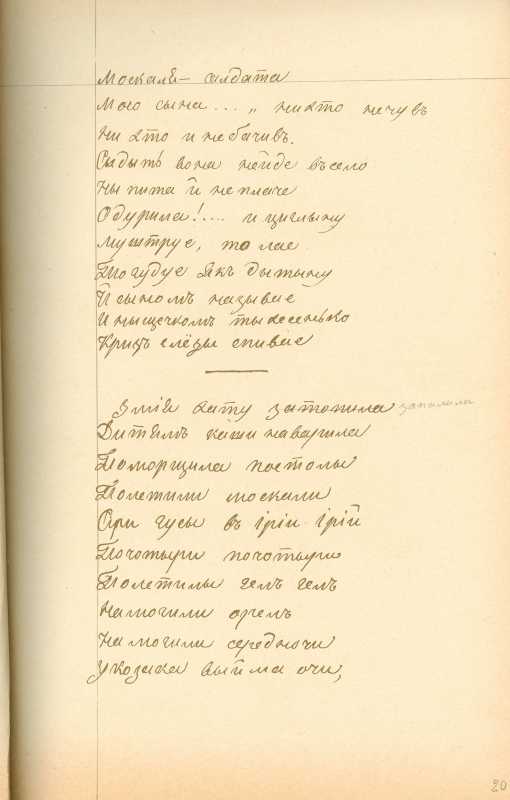 Москаля – салдата
Мого сына... „ нихто нечувъ
Ни хто и небачивъ.
Сыдыть вона нейде въ село
Ны пита й не плаче
Одурила!.... и циглыну
Муштруе, то лае
То гудуе якъ дытыну
Й сыномъ называе
И нышечкомъ тыхесенько
Кризь слёзы спивае
Змія хату затопила запалила
Дитямъ каши наварила
Поморщила постолы
Полетили москали
Ари гусы въ ірій ірій
По чотыри по чотыри
Полетилы гелъ гелъ
На могили орелъ
На могили середночи
У козака выйма очи,
20